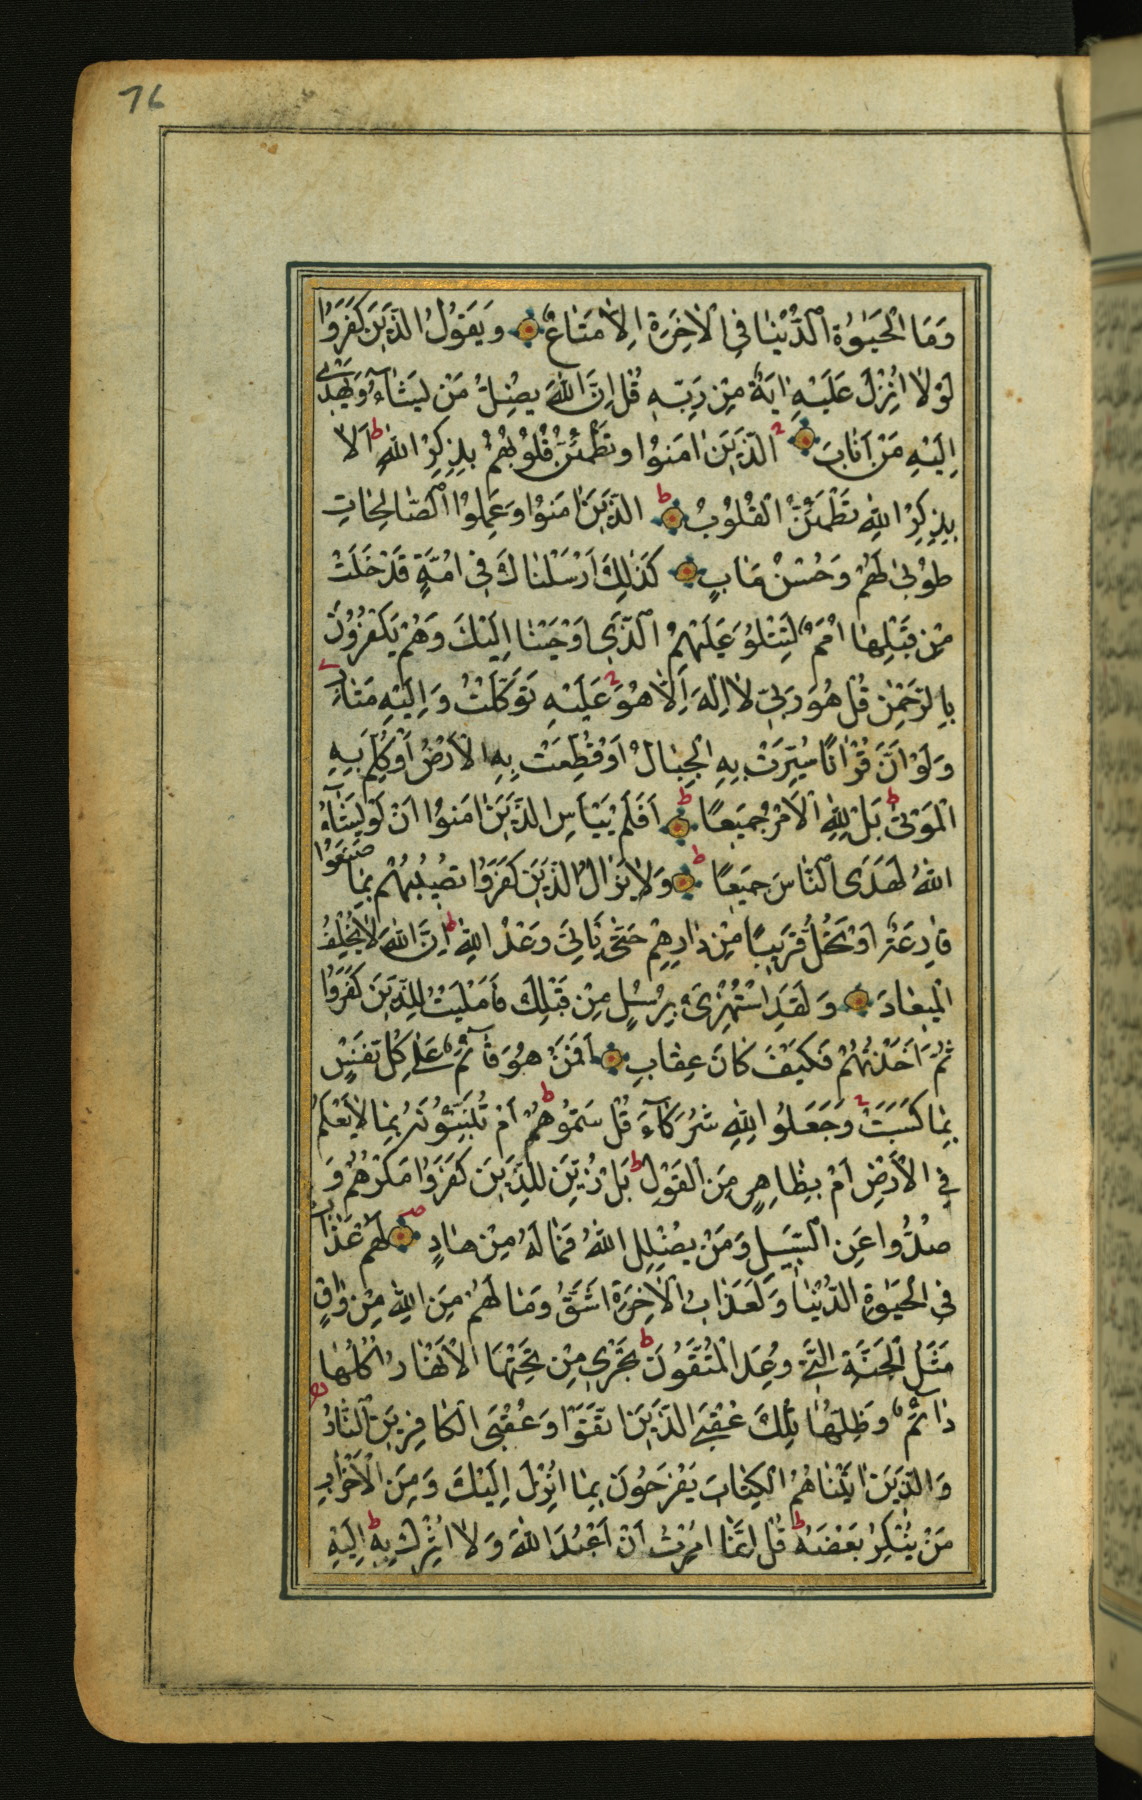 76
وَمَا الْحَيٰوةُ الدُّنْيَا فِى الْاٰخِرَةِ اِلَّا مَتَاعٌ وَيَقُولُ الَّذِينَ كَفَرُوا
لَوْلَا اُنْزِلَ عَلَيْهِ اٰيَةٌ مِنْ رَبِّهِ قُلْ اِنَّ اللّٰهَ يُضِلُّ مَنْ يَشَاءُ وَيَهْدِى
اِلَيْهِ مَنْ اَنَابَ الَّذِينَ اٰمَنُوا وَتَطْمَئِنُّ قُلُوبُهُمْ بِذِكْرِ اللّٰهِ ط اَلَا
بِذِكْرِ اللّٰهِ تَطْمَئِنُّ الْقُلُوبُ ط الَّذِينَ اٰمَنُوا وَعَمِلُوا الصَّالِحَاتِ
طُوبٰى لَهُمْ وَحُسْنُ مَاٰبٍ كَذٰلِكَ اَرْسَلْنَاكَ فِى اُمَّةٍ قَدْ خَلَتْ
مِنْ قَبْلِهَا اُمَمٌ لِتَتْلُوَ عَلَيْهِمُ الَّذِى اَوْحَيْنَا اِلَيْكَ وَهُمْ يَكْفُرُونَ
بِالرَّحْمٰنِ قُلْ هُوَ رَبِّى لَا اِلٰهَ اِلَّا هُوَ عَلَيْهِ تَوَكَّلْتُ وَاِلَيْهِ مَتَابِ
وَلَوْ اَنَّ قُرْاٰنًا سُيِّرَتْ بِهِ الْجِبَالُ اَوْ قُطِّعَتْ بِهِ الْاَرْضُ اَوْ كُلِّمَ بِهِ
الْمَوْتٰى ط بَلْ لِلّٰهِ الْاَمْرُ جَمِيعًا ط اَفَلَمْ يَيْاَسِ الَّذِينَ اٰمَنُوا اَنْ لَوْ يَشَاءُ
اللّٰهُ لَهَدَى النَّاسَ جَمِيعًا ط وَلَا يَزَالُ الَّذِينَ كَفَرُوا تُصِيبُهُمْ بِمَا صَنَعُوا
قَارِعَةٌ اَوْ تَحُلُّ قَرِيبًا مِنْ دَارِهِمْ حَتّٰى يَاْتِىَ وَعْدُ اللّٰهِ ط اِنَّ اللّٰهَ لَا يُخْلِفُ
الْمِيعَادَ وَلَقَدِ اسْتُهْزِئَ بِرُسُلٍ مِنْ قَبْلِكَ فَاَمْلَيْتُ لِلَّذِينَ كَفَرُوا
ثُمَّ اَخَذْتُهُمْ فَكَيْفَ كَانَ عِقَابِ اَفَمَنْ هُوَ قَائِمٌ عَلٰى كُلِّ نَفْسٍ
بِمَا كَسَبَتْ وَجَعَلُوا لِلّٰهِ شُرَكَاءَ قُلْ سَمُّوهُمْ ط اَمْ تُنَبِّئُونَهُ بِمَا لَا يَعْلَمُ
فِى الْاَرْضِ اَمْ بِظَاهِرٍ مِنَ الْقَوْلِ ط بَلْ زُيِّنَ لِلَّذِينَ كَفَرُوا مَكْرُهُمْ وَ
صُدُّوا عَنِ السَّبِيلِ وَمَنْ يُضْلِلِ اللّٰهُ فَمَا لَهُ مِنْ هَادٍ لَهُمْ عَذَابٌ
فِى الْحَيٰوةِ الدُّنْيَا وَلَعَذَابُ الْاٰخِرَةِ اَشَقُّ وَمَا لَهُمْ مِنَ اللّٰهِ مِنْ وَاقٍ
مَثَلُ الْجَنَّةِ الَّتِى وُعِدَ الْمُتَّقُونَ ط تَجْرِى مِنْ تَحْتِهَا الْاَنْهَارُ اُكُلُهَا
دَائِمٌ وَظِلُّهَا تِلْكَ عُقْبَى الَّذِينَ اتَّقَوْا وَعُقْبَى الْكَافِرِينَ النَّارُ
وَالَّذِينَ اٰتَيْنَاهُمُ الْكِتَابَ يَفْرَحُونَ بِمَا اُنْزِلَ اِلَيْكَ وَمِنَ الْاَحْزَابِ
مَنْ يُنْكِرُ بَعْضَهُ ط قُلْ اِنَّمَا اُمِرْتُ اَنْ اَعْبُدَ اللّٰهَ وَلَا اُشْرِكَ بِهِ ط اِلَيْهِ